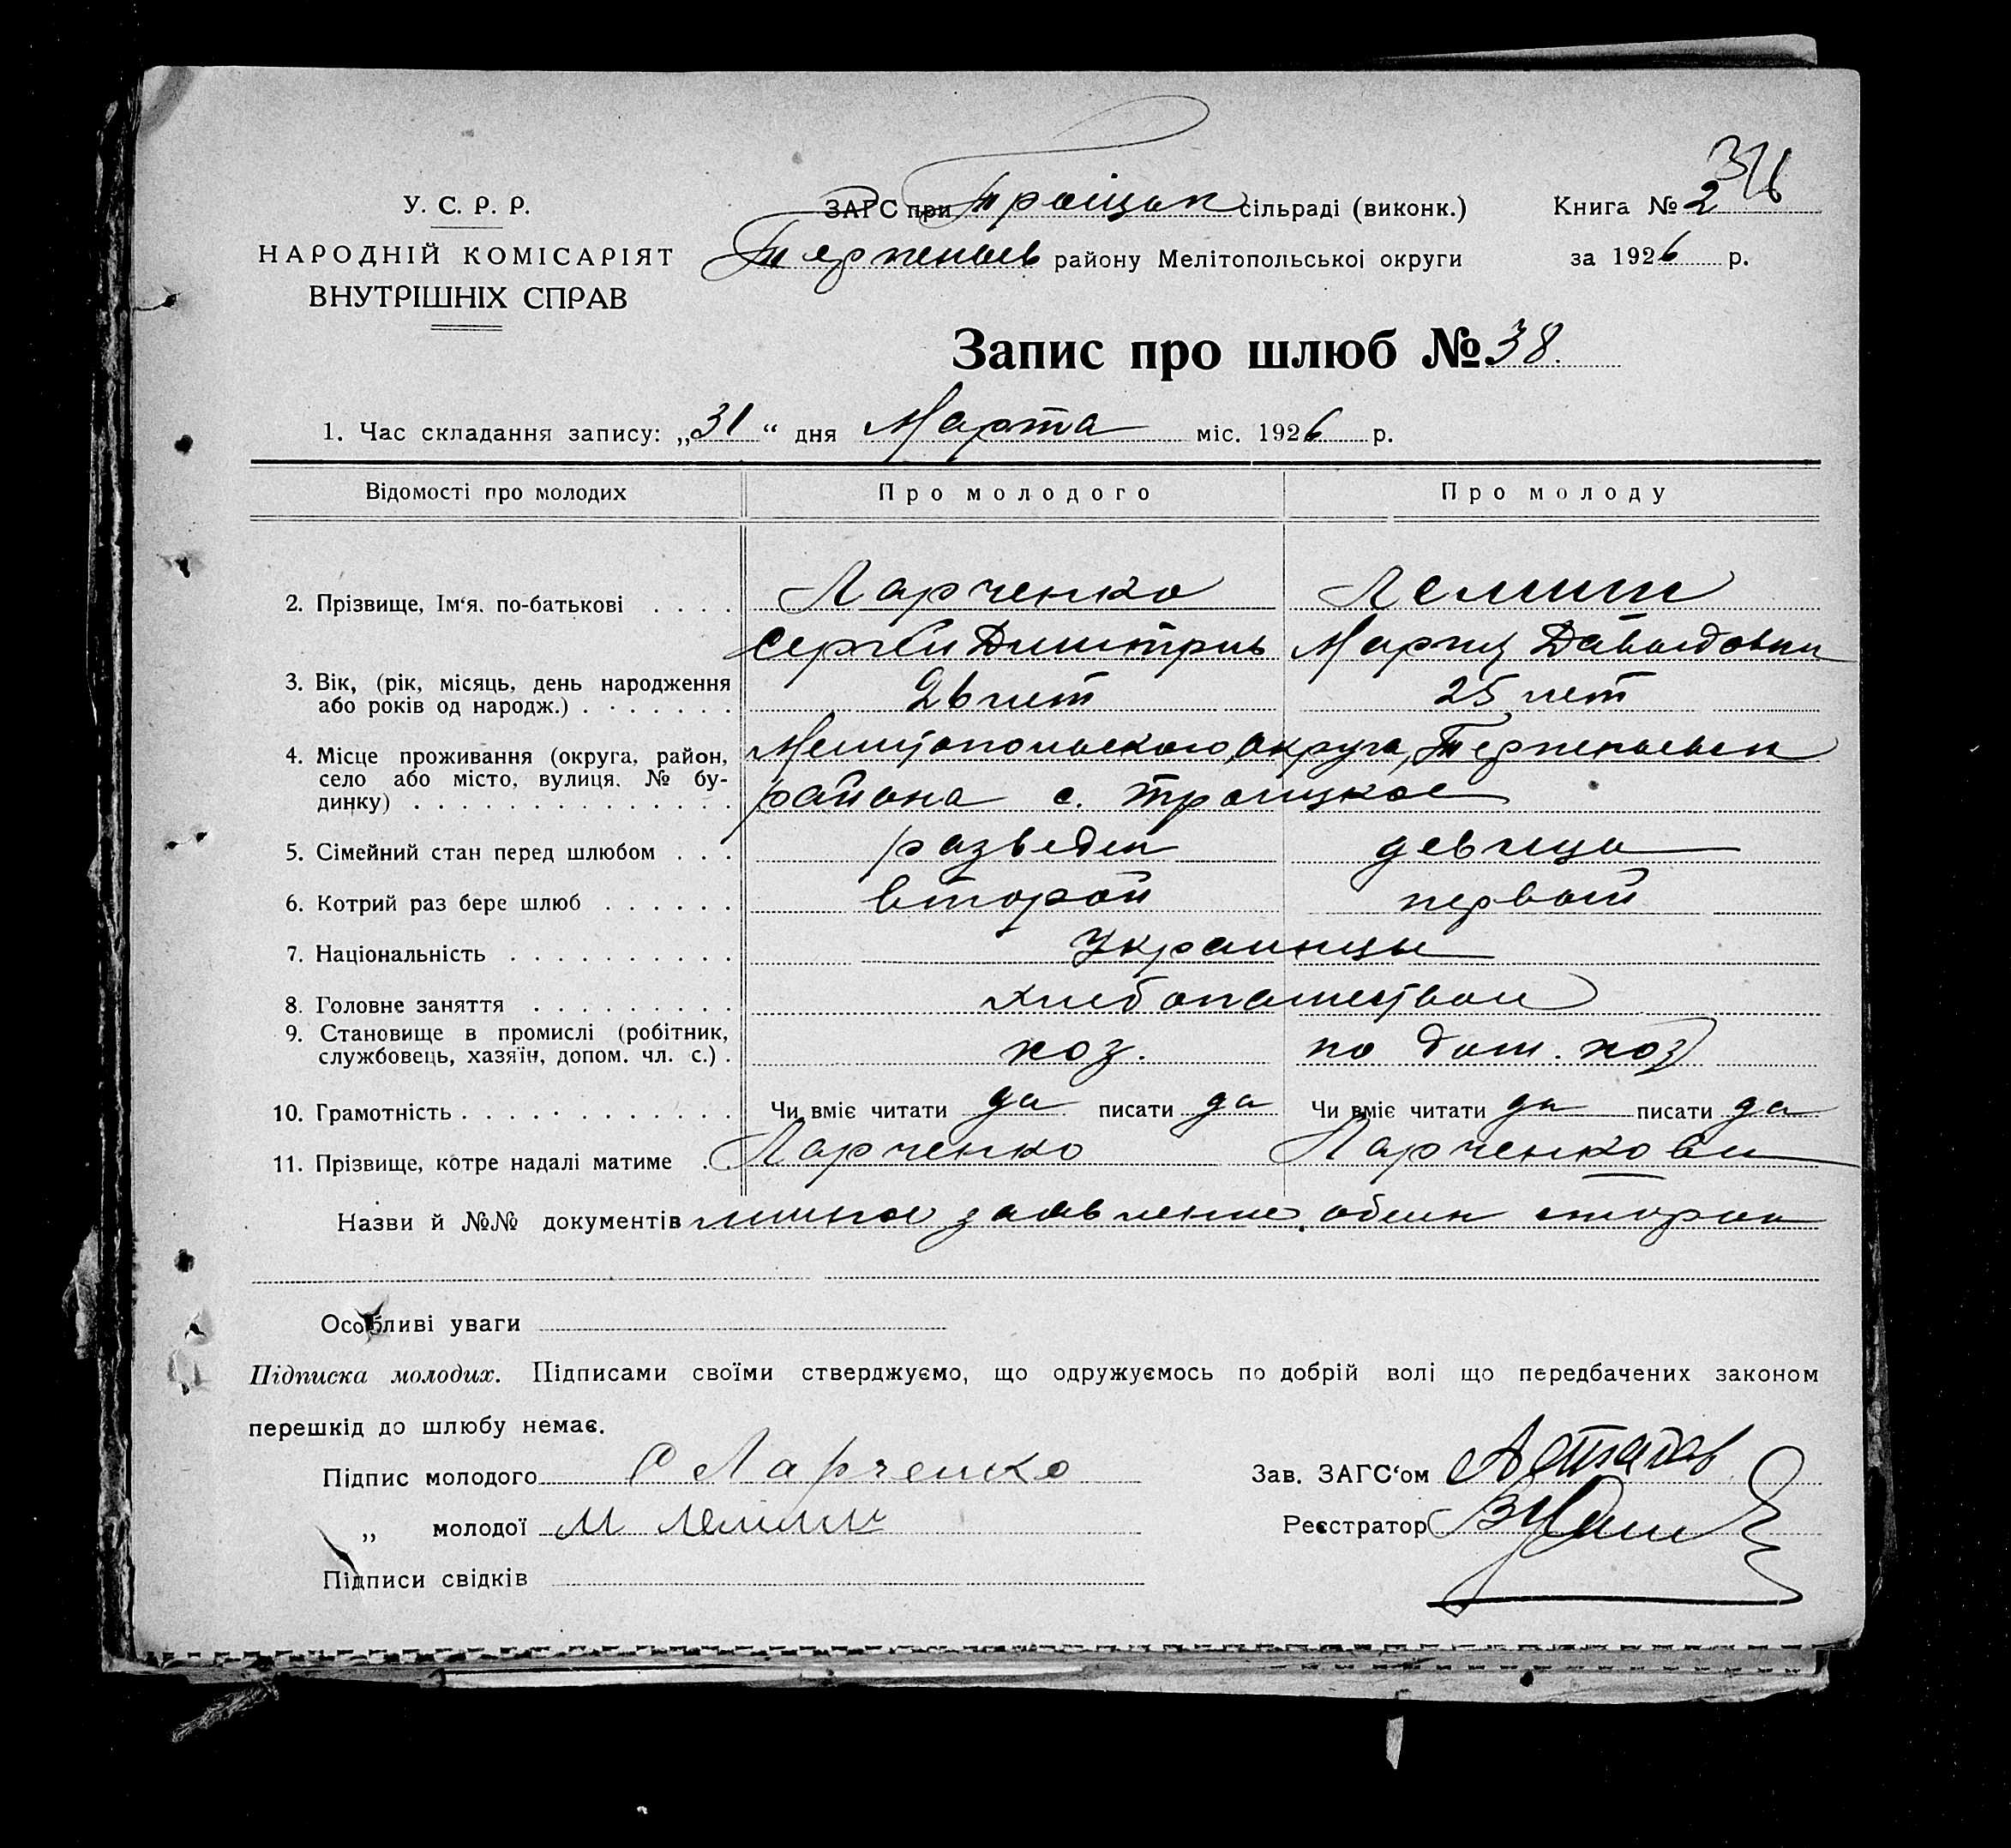 У. С. Р. Р.
НАРОДНІЙ КОМІСАРІЯТ
ВНУТРІШНІХ СПРАВ
ЗАГС при Троіцк сільраді (виконк.)
Терпеньев району Мелітопольської округи
Книга № 2
за 1926 р.
Запис про шлюб № 38.
1. Час складання запису: „31“ дня Марта міс. 1926 р.
Відомості про молодих Про молодого Про молоду
2. Прізвище, Ім'я, по-батькові . . . . Ларченко Лемиш
Сергей Димитрив Мария Давыдовна
3. Вік, (рік, місяць, день народження
або років од народж.) . . . . . . . 26 лет 25 лет
4. Місце проживання (округа, район,
село або місто, вулиця, № бу-
динку) . . . . . . . . . . . . . .
Мелитопольского округа, Терпеньевск
района с. Троицкое
5. Сімейний стан перед шлюбом . . . разведен девица
6. Котрий раз бере шлюб . . . . . . второй первый
7. Національність . . . . . . . . . . Украинцы
8. Головне заняття . . . . . . . . . хлебопашеством
9. Становище в промислі (робітник,
службовець, хазяїн, допом. чл. с.) . хоз. по дом. хоз
10. Грамотність . . . . . . . . . . . . Чи вміє читати да писати да Чи вміє читати да писати да
11. Прізвище, котре надалі матиме . Ларченко Ларченкова
Назви й №№ документів заявление обеих сторон
Особливі уваги
Підписка молодих. Підписами своїми стверджуємо, що одружуємось по добрій волі що передбачених законом
перешкід до шлюбу немає.
Підпис молодого С Ларченко
„ молодої М Лемиш
Підписи свідків
Зав. ЗАГС'ом
Реєстратор